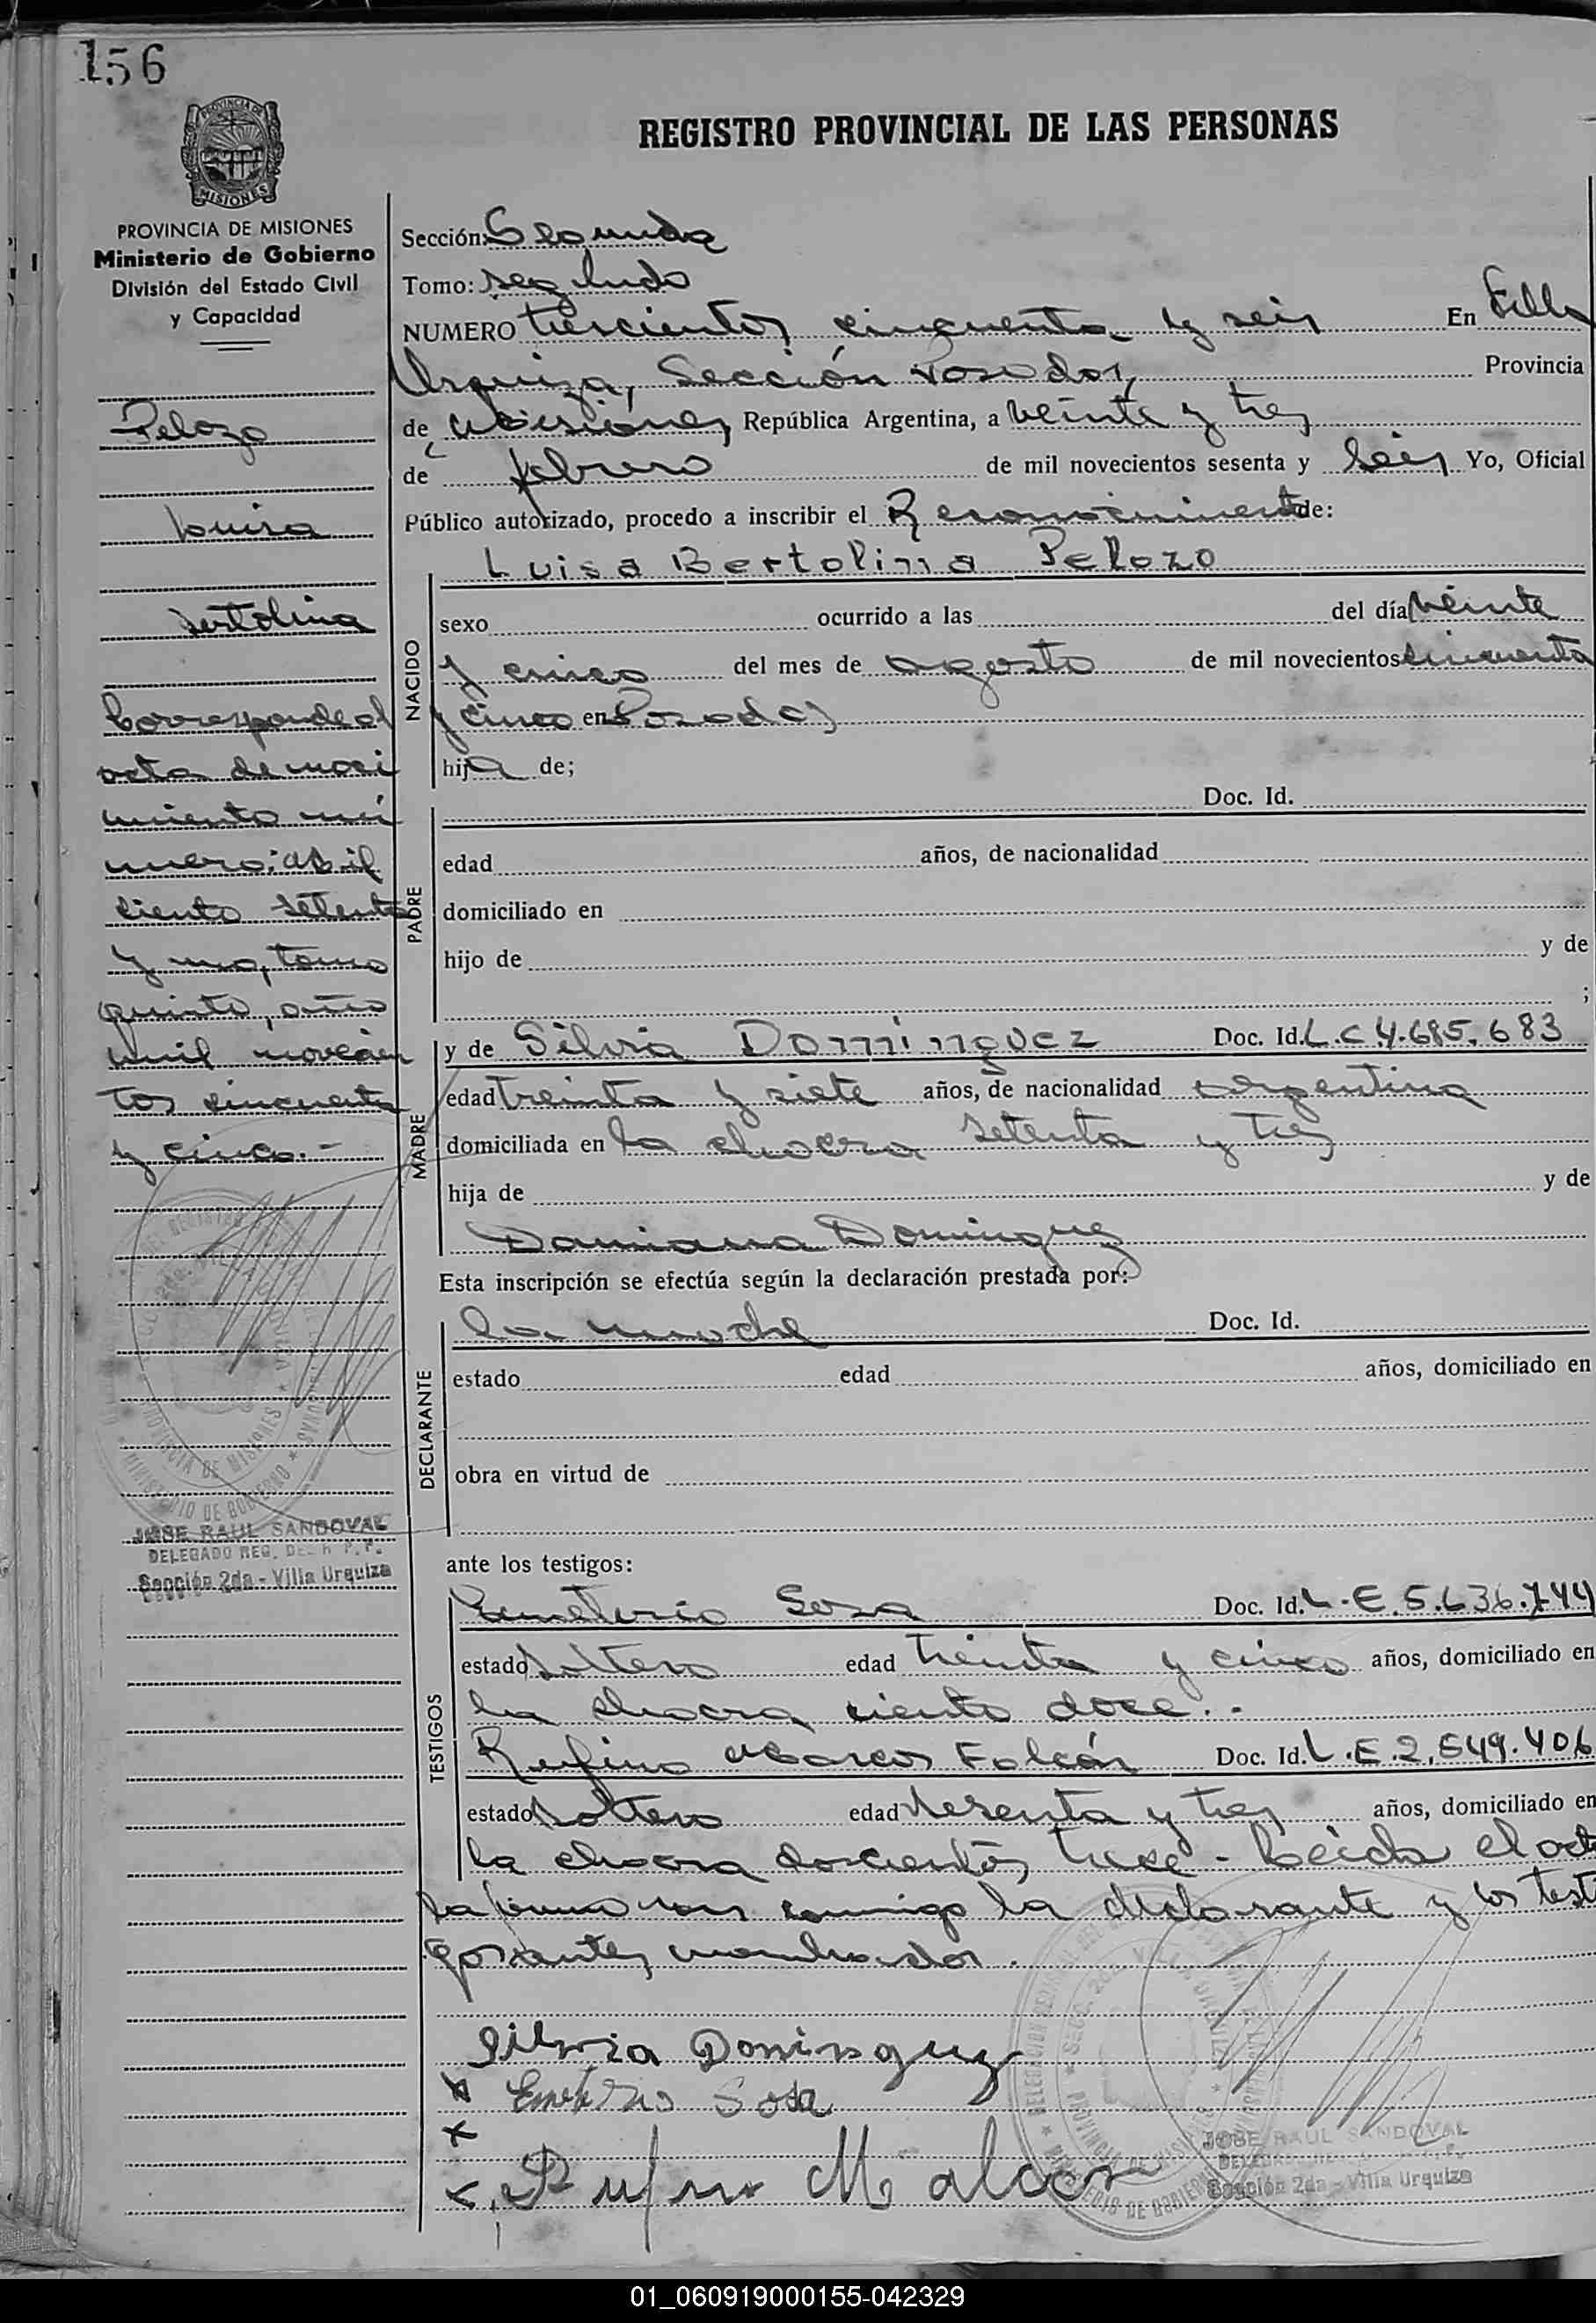 156
PROVINCIA DE MISIONES
REGISTRO PROVINCIAL DE LAS PERSONAS
PROVINCIA DE MISIONES
Ministerio de Gobierno
División del Estado Civil
y Capacidad
Pelozo
Luisa
Bertolina
Corresponde al
acta de naci
miento nú
mero: Mil
ciento setenta
y uno, tomo
quinto, año
mil novecien
tos cincuenta
y cinco.-
JOSE RAUL SANDOVAL
DELEGADO REG. DE R. P. P.
Sección 2da - Villa Urquiza
Sección: Segunda
Tomo: segundo
NUMERO trescientos cincuenta y seis En Villa
Urquiza, Sección Posadas, Provincia
de Misiones, República Argentina, a veinte y tres
de febrero de mil novecientos sesenta y seis Yo, Oficial
Público autorizado, procedo a inscribir el Reconocimiento de:
Luisa Bertolina Pelozo
NACIDO
sexo ocurrido a las del día veinte
y cinco del mes de agosto de mil novecientos cincuenta
y cinco en Posadas
hija de;
PADRE
Doc. Id.
edad años, de nacionalidad
domiciliado en
hijo de y de
;
MADRE
y de Silvia Dominguez Doc. Id. L.C 4.685.683
edad treinta y siete años, de nacionalidad argentina
domiciliada en la chacra setenta y tres
hija de y de
Damiana Dominguez
Esta inscripción se efectúa según la declaración prestada por:
DECLARANTE
la madre Doc. Id.
estado edad años, domiciliado en
obra en virtud de
ante los testigos:
TESTIGOS
Emeterio Sosa Doc. Id. L.E.5.636.744
estado soltero edad treinta y cinco años, domiciliado en
la chacra ciento doce.-
Rufino Marcos Falcón Doc. Id. L.E.2.549.406
estado soltero edad sesenta y tres años, domiciliado en
la chacra doscientos trece - Leída el acta
la firman conmigo la declarante y los testi
gos antes nombrados.
Silvia Dominguez
x Emeterio Sosa
x
x Rufino M
JOSE RAUL SANDOVAL
Sección 2da - Villa Urquiza
01_060919000155-042329